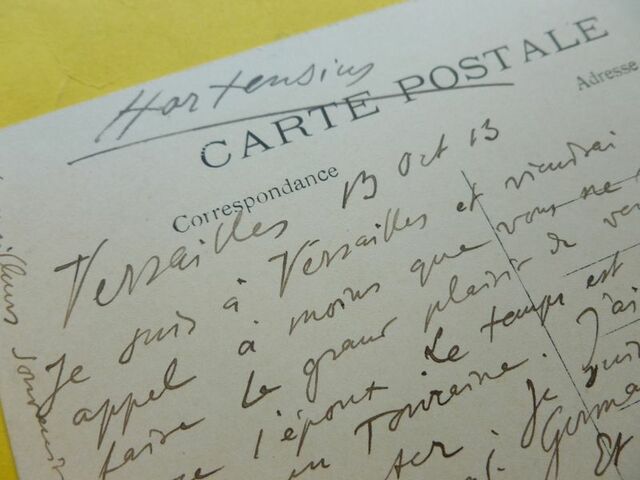 Hortensius
CARTE POSTALE
Adresse
Correspondance
Versailles 13 Oct 13
Je suis à Versailles et viendrai
appel à moins que vous ne
faire le grand plaisir de
l'époux. Le temps est
en Touraine. J'ai
Je suis
St. Germa
Et